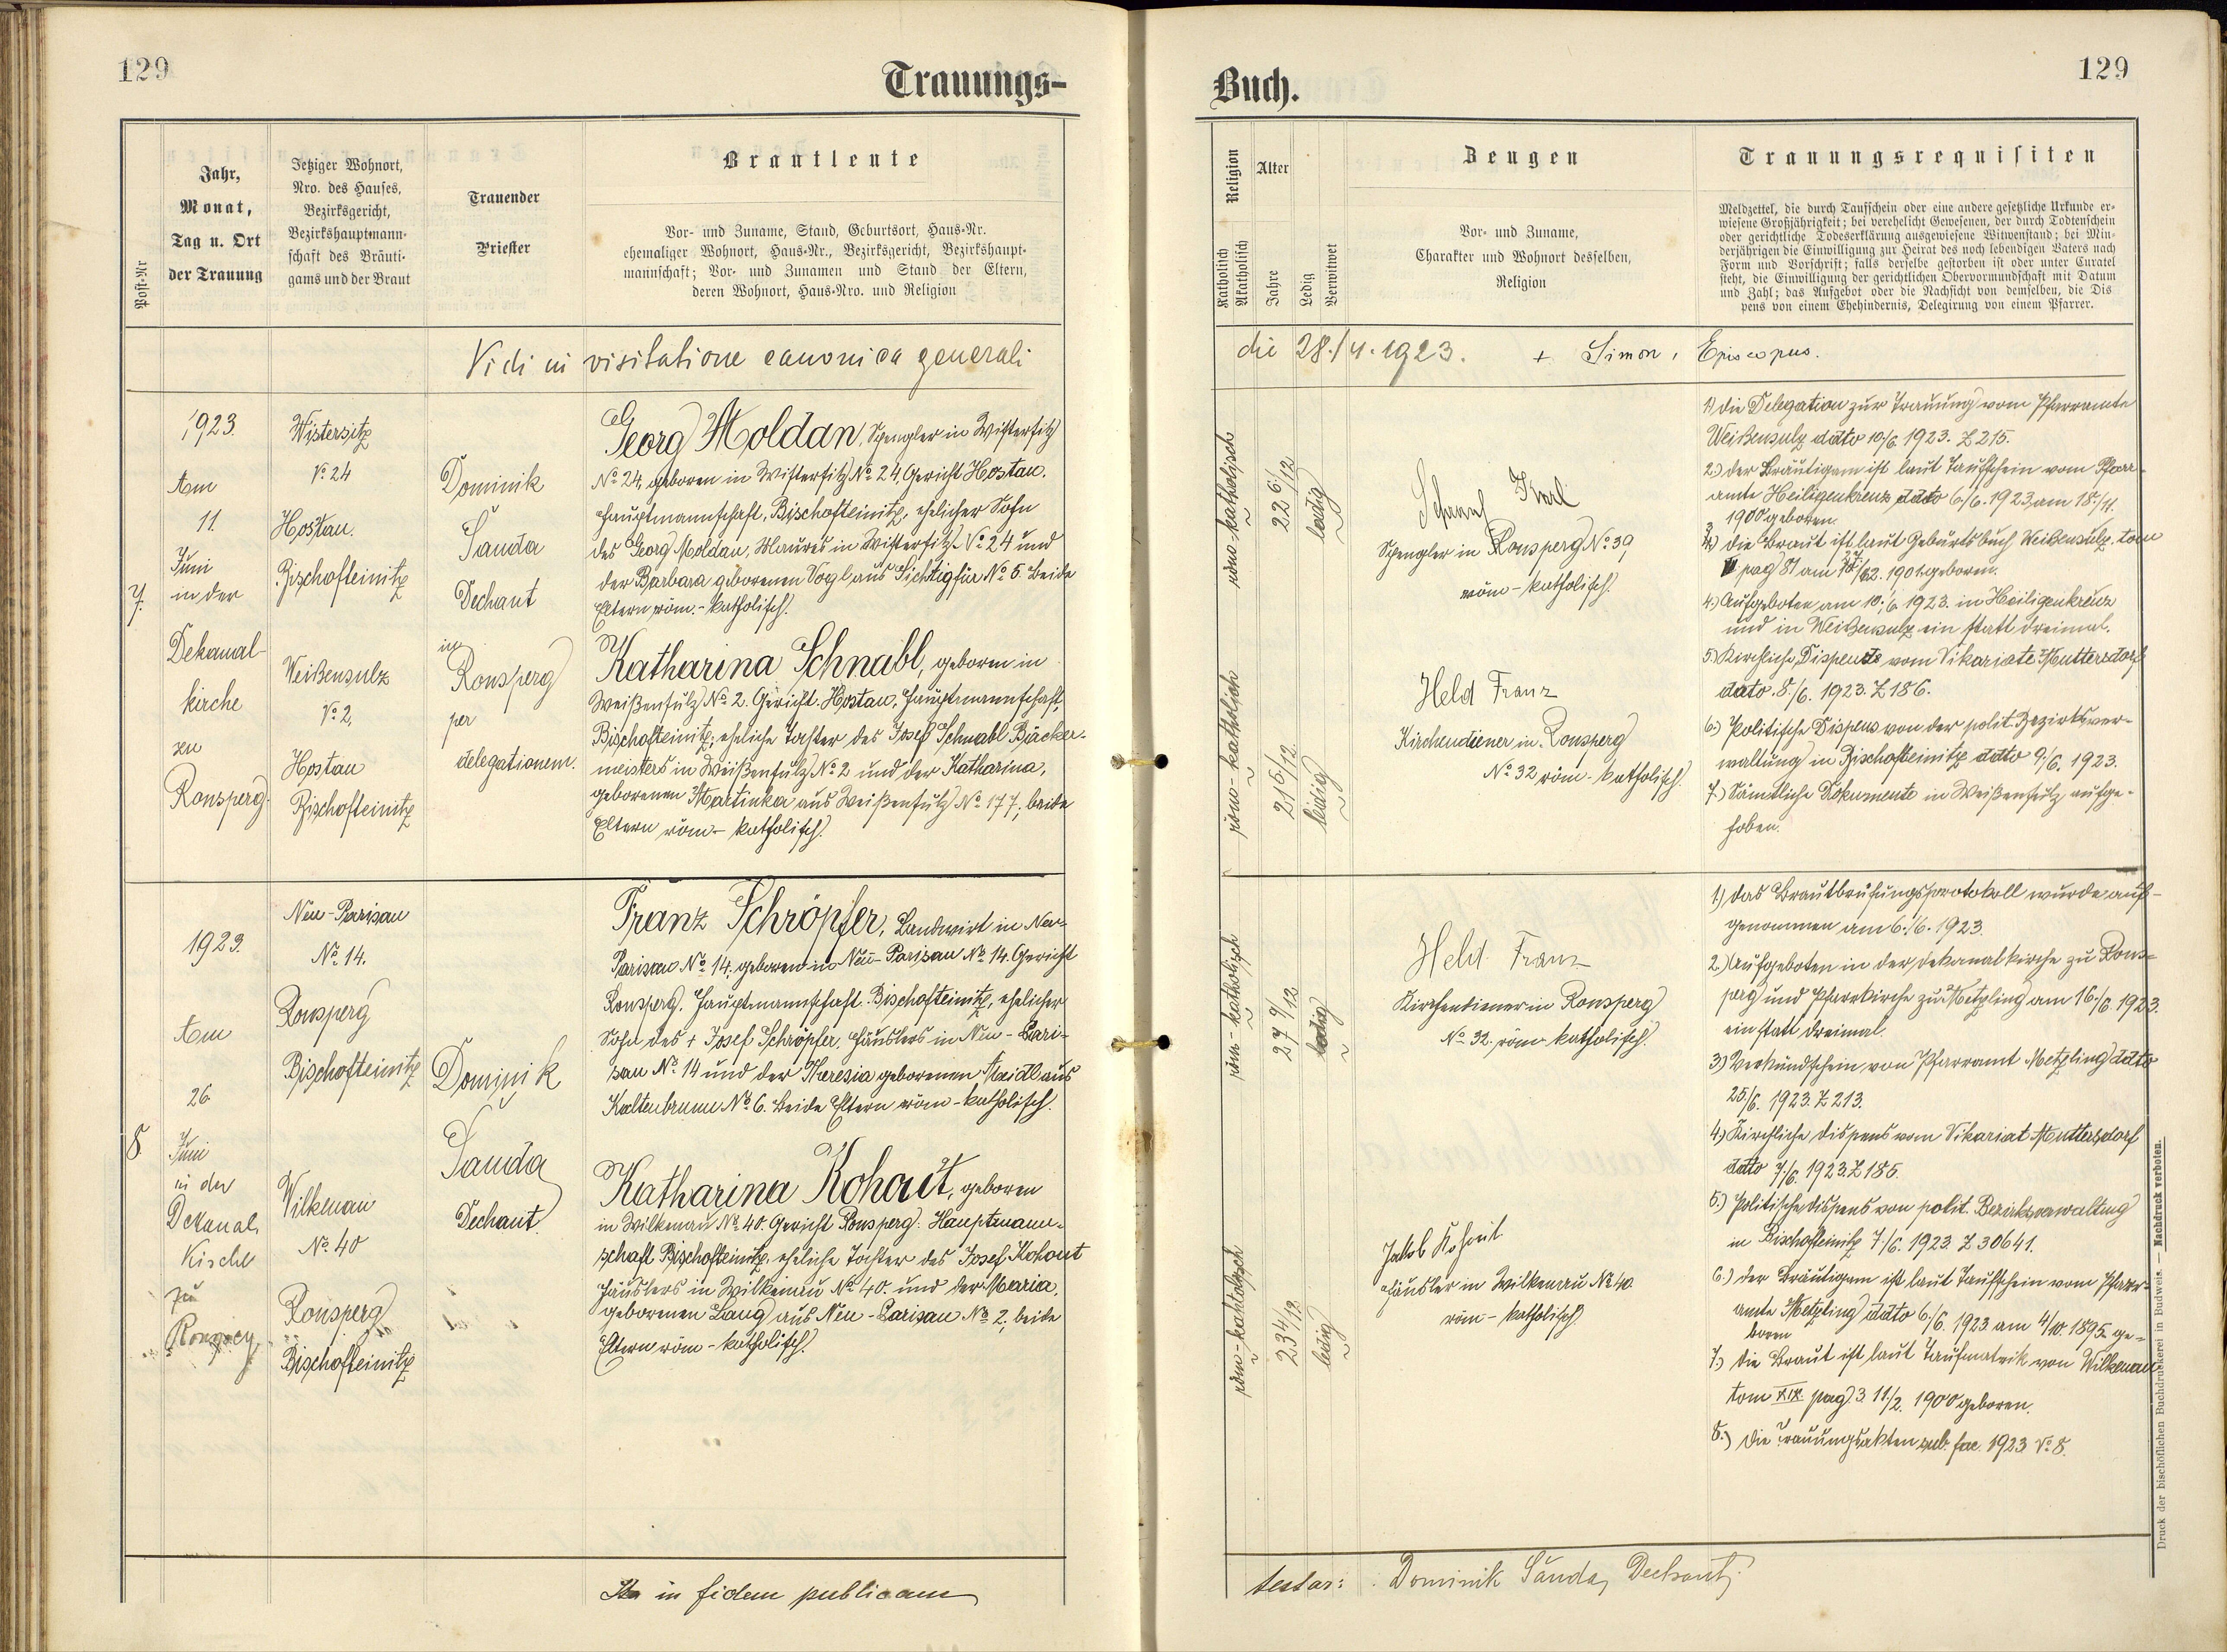 129
Trauungs-
Post-Nr
Jahr,
Monat,
Tag u. Ort
der Trauung
Jetziger Wohnort,
Nro. des Hauses,
Bezirksgericht,
Bezirkshauptmann-
schaft des Bräuti-
gams und der Braut
Trauender
Priester
Brautleute
Vor- und Zuname, Stand, Geburtsort, Haus-Nr.
ehemaliger Wohnort, Haus-Nr., Bezirksgericht, Bezirkshaupt-
mannschaft; Vor- und Zunamen und Stand der Eltern,
deren Wohnort, Haus-Nro. und Religion
Vidi in visitatione canonica generali
7.
1923.
Am
11.
Juni
in der
Dekanal-
kirche
zu
Ronsperg.
Wistersitz
No 24
Hostau.
Bischofteinitz
Weißensulz
No 2,
Hostau
Bischofteinitz
Dominik
Šanda
Dechant
in
Ronsperg
per
delegationem.
Georg Moldan, Spengler in Wistersitz
No 24, geboren in Wistersitz No 24, Gericht Hostau.
Hauptmannschaft, Bischofteinitz, ehelicher Sohn
des Georg Moldan, Maurers in Wistersitz No 24 und
der Barbara geborenen Vogl aus Sichtigfür No 5. Beide
Eltern röm.-katholisch.
Katharina Schnabl, geboren in
Weißensulz No 2. Gericht Hostau, Hauptmannschaft,
Bischofteinitz; eheliche Tochter des Josef Schnabl Bäcker-
meisters in Weißensulz No 2 und der Katharina,
geborenen Martinka aus Weißensulz No 177; beide
Eltern röm-katholisch.
8.
1923.
Am
26.
Juni
in der
Dekanal,
Kirche
zu
Ronsperg
Neu-Parisau
No 14.
Ronsperg
Bischofteinitz
Wilkenau
No 40
Ronsperg
Bischofteinitz
Dominik
Šanda
Dechant
Franz Schröpfer, Landwirt in Neu-
Parisau No 14, geboren in Neu-Parisau No 14. Gericht
Ronsperg. Hauptmannschaft Bischofteinitz, ehelicher
Sohn des + Josef Schröpfer, Häuslers in Neu-Pari-
sau No 14 und der Theresia geborenen Maidl aus
Kaltenbrunn No 6. Beide Eltern röm-katholisch.
Katharina Kohout, geboren
in Wilkenau No 40. Gericht Ronsperg. Hauptmann-
schaft Bischofteinitz. eheliche Tochter des Josef Kohout
Häuslers in Wilkenau No 40. und der Maria,
geborenen Lang aus Neu-Parisau No 2, beide
Eltern röm-katholisch.
Ita in fidem publicam
129
Buch.
Religion
Katholisch
Akatholisch
Alter
Jahre
Ledig
Verwitwet
Zeugen
Vor- und Zuname,
Charakter und Wohnort desselben,
Religion
Trauungsrequisiten
Meldzettel, die durch Taufschein oder eine andere gesetzliche Urkunde er-
wiesene Großjährigkeit; bei verehelicht Gewesenen, der durch Todtenschein
oder gerichtliche Todeserklärung ausgewiesene Witwenstand; bei Min-
derjährigen die Einwilligung zur Heirat des noch lebendigen Vaters nach
Form und Vorschrift; falls derselbe gestorben ist oder unter Curatel
steht, die Einwilligung der gerichtlichen Obervormundschaft mit Datum
und Zahl; das Aufgebot oder die Nachsicht von demselben, die Dis
pens von einem Ehehindernis, Delegirung von einem Pfarrer.
die 28./4.1923. + Simon, Episcopus.
röm-katholisch
22 6/12
ledig
Karl
Spengler in Ronsperg No 39,
röm-katholisch.
röm-katholisch
21 5/12
ledig
Held Franz
Kirchendiener in Ronsperg
No 32 röm-katholisch.
1) die Delegation zur Trauung vom Pfarramte
Weißensulz dato 10/6. 1923. Z 215.
2.) der Bräutigam ist laut Taufschein vom Pfarr-
amte Heiligenkreuz dato 6/6. 1923, am 18./11.
1900 geboren.
3.) die Braut ist laut Geburtsbuch Weißensulz. tom
pag 81 am 1901 geboren.
4.) Aufgeboten am 10./6. 1923. in Heiligenkreuz
und in Weißensulz ein statt dreimal.
5.) Kirchliche Dispense vom Vikariate Muttersdorf
dato. 8./6. 1923. Z 186.
6.) Politische Dispens von der polit. Bezirksver-
waltung in Bischofteinitz dato 9/6. 1923.
7.) Sämtliche Dokumente in Weißensulz aufge-
hoben.
röm-katholisch
27 9/12
ledig
Held Franz
Kirchendiener in Ronsperg
No 32. röm katholisch.
röm-kahtolisch
23 4/12
ledig
Jakob Kohout
Häusler in Wilkenau No 40.
röm-katholisch
1) das Brautbrüfungsprotokoll wurde auf-
genommen am 6./6. 1923.
2.) Aufgeboten in der Dekanalkirche zu Rons-
perg und Pfarrkirche zu Metzling am 16./6. 1923.
ein statt dreimal.
3) Verkündschein von Pfarramt Metzling dato
25/6. 1923. Z 213.
4.) Kirchliche dispens vom Vikariat Muttersdorf
dato 7/6. 1923. Z 185.
5.) Politische dispens von polit. Bezirksverwaltung
in Bischofteinitz 7./6. 1923. Z 30641.
6.) der Bräutigam ist laut Taufschein vom Pfarr-
amte Metzling dato 6./6. 1923 am 4/10. 1895 ge-
boren
7.) die Braut ist laut Taufmatrik von Wilkenau
tom XIX. pag. 3 11./2. 1900 geboren.
8.) die Trauungsakten sub. fac. 1923 No 8.
testor: Dominik Šanda, Dechant.
Druck der bischöflichen Buchdruckerei in Budweis. — Nachdruck verboten.